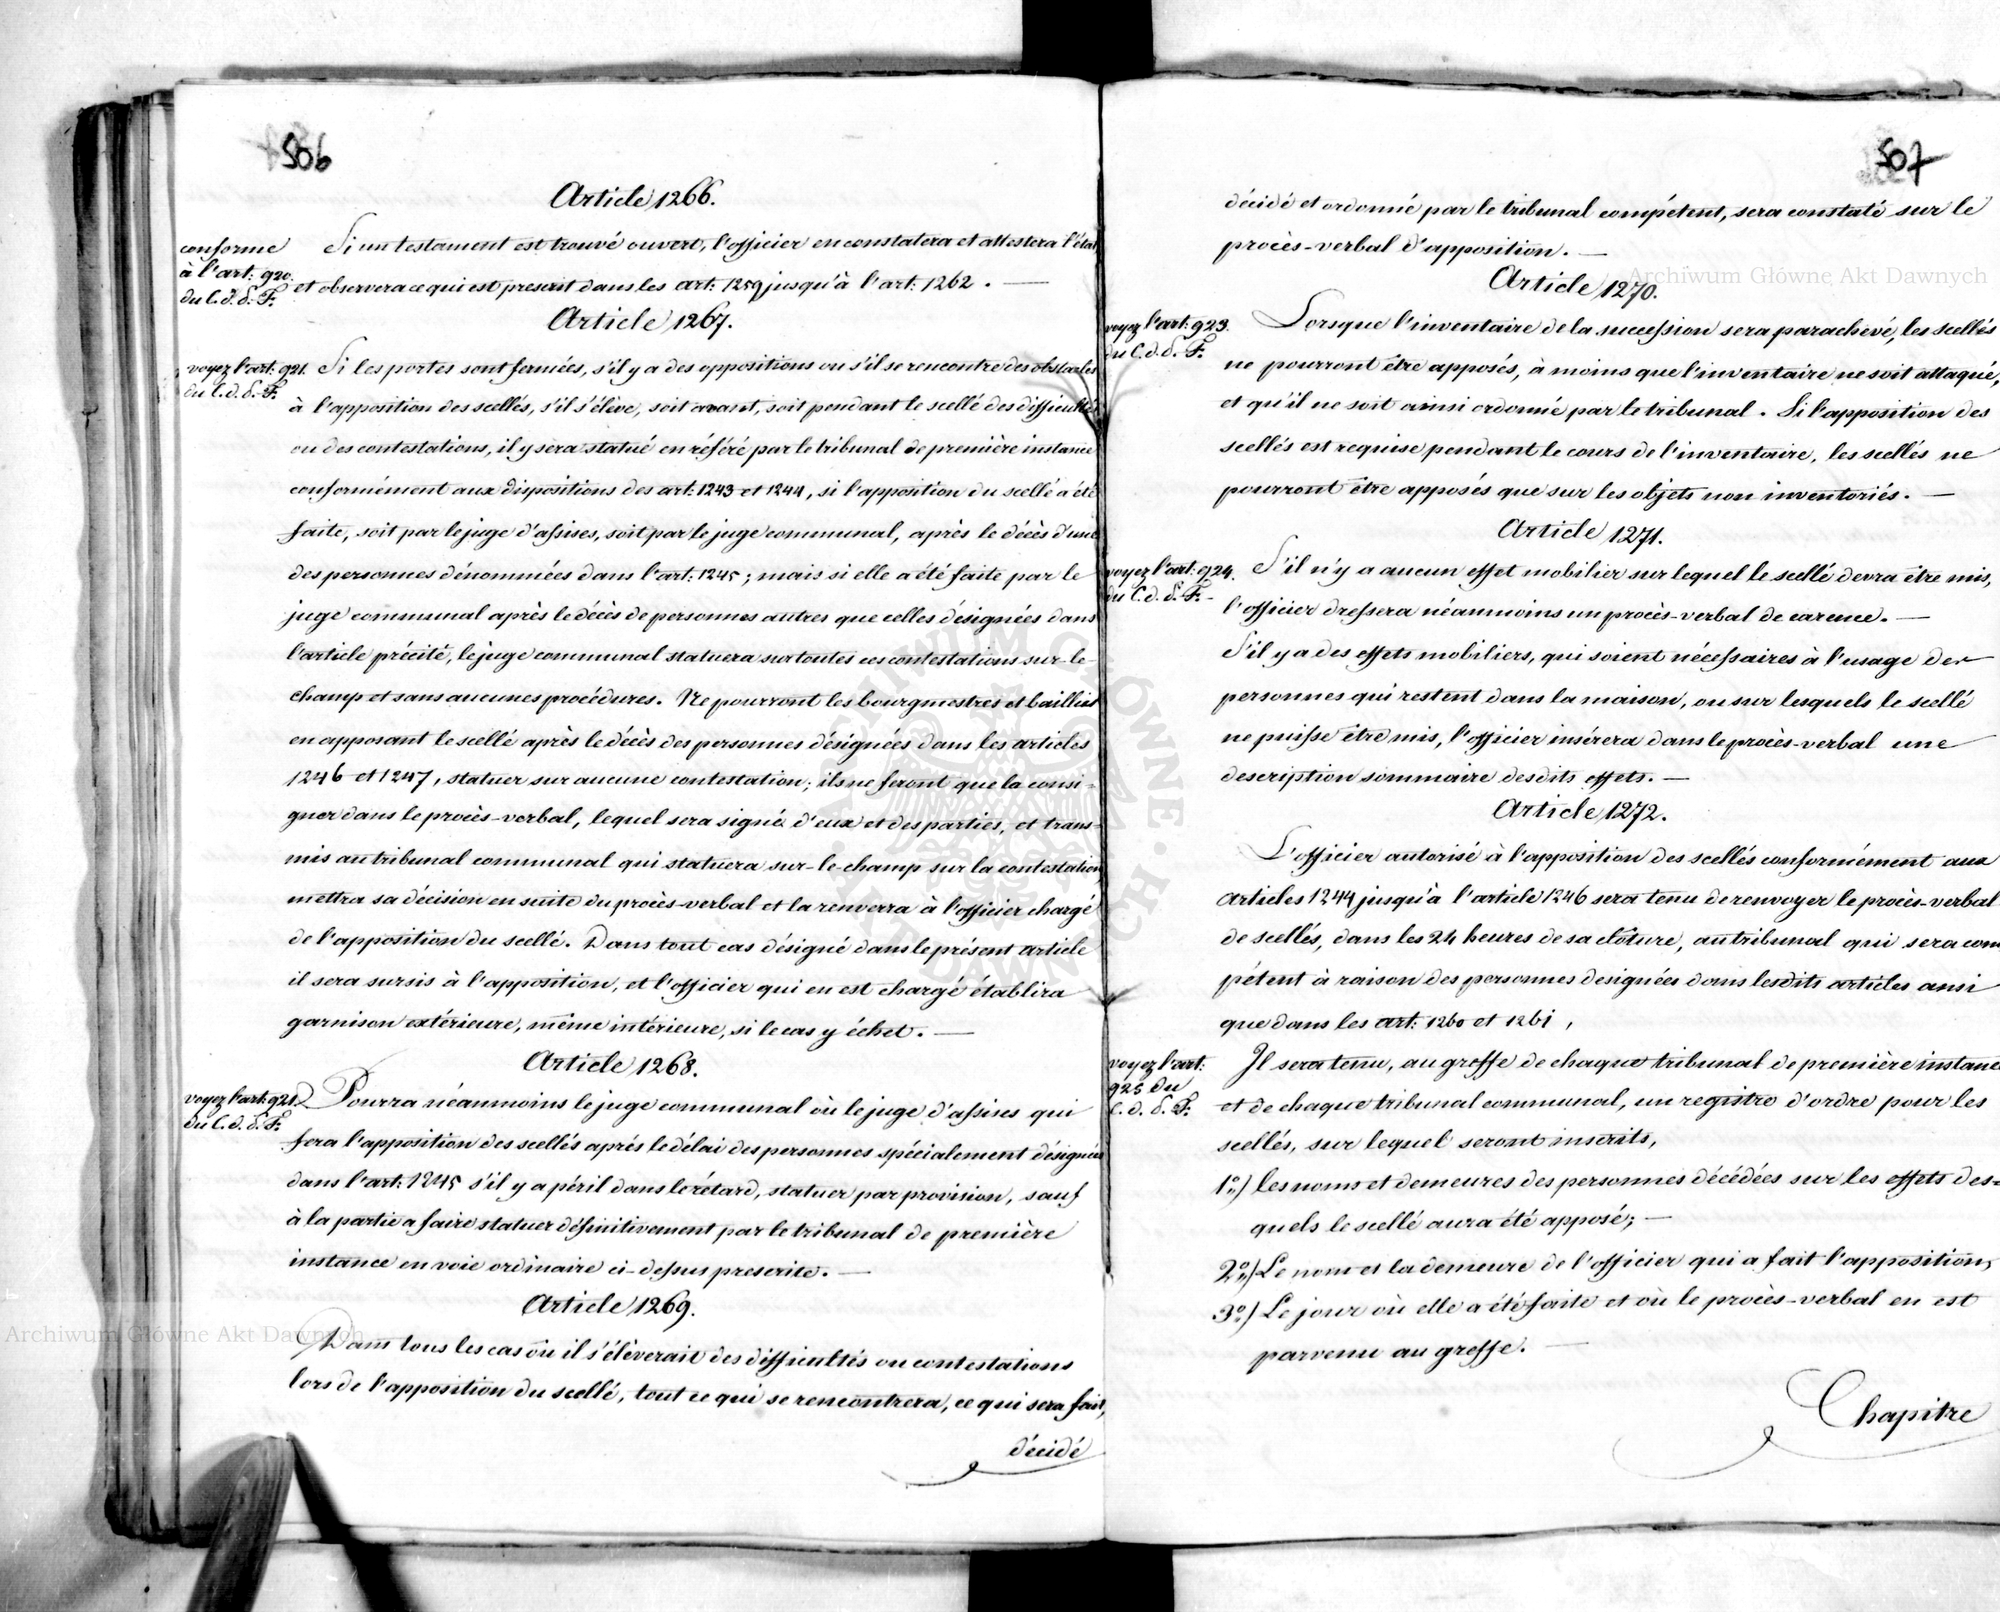 506
Article 1266.
conforme
à l'art: 920.
du C. d. d. F.
Si un testament est trouvé ouvert, l'officier en constatera et attestera l'état
et observera ce qui est prescrit dans les art: 1259 jusqu'à l'art: 1262. —
Article 1267.
voyez l'art: 921.
du C. d. d. F.
Si les portes sont fermées, s'il y a des oppositions ou s'il se rencontre des obstacles
à l'apposition des scellés, s'il s'élève, soit avant, soit pendant le scellé des difficultés
ou des contestations, il y sera statué en référé par le tribunal de première instance
conformément aux dispositions des art: 1243 et 1244, si l'apposition du scellé a été
faite, soit par le juge d'assises, soit par le juge communal, après le décès d'une
des personnes dénommées dans l'art: 1245; mais si elle a été faite par le
juge communal après le décès de personnes autres que celles désignées dans
l'article précité, le juge communal statuera sur toutes ces contestations sur-le-
champ et sans aucunes procédures. Ne pourront les bourgmestres et baillis
en apposant le scellé après le décès des personnes désignées dans les articles
1246 et 1247, statuer sur aucune contestation; ils ne feront que la consi-
gner dans le procès-verbal, lequel sera signé d'eux et des parties, et trans-
mis au tribunal communal qui statuera sur-le-champ sur la contestation,
mettra sa décision en suite du procès-verbal et la renverra à l'officier chargé
de l'apposition du scellé. Dans tout cas désigné dans le présent article
il sera sursis à l'apposition, et l'officier qui en est chargé établira
garnison extérieure, même intérieure, si le cas y échet. —
Article 1268.
voyez l'art: 921.
du C. d. d. F.
Pourra néanmoins le juge communal où le juge d'assises qui
fera l'apposition des scellés après le délai des personnes spécialement désignées
dans l'art: 1245 s'il y a péril dans le rétard, statuer par provision, sauf
à la partie a faire statuer définitivement par le tribunal de première
instance en voie ordinaire ci-dessus prescrite. —
Article 1269.
Dans tous les cas où il s'élèverait des difficultés ou contestations
lors de l'apposition du scellé, tout ce qui se rencontrera, ce qui sera fait,
décidé
507
décidé et ordonné par le tribunal compétent, sera constaté sur le
procès-verbal d'apposition. —
Article 1270.
voyez l'art: 923.
du C. d. d. F.
Lorsque l'inventaire de la succession sera parachevé, les scellés
ne pourront être apposés, à moins que l'inventaire ne soit attaqué,
et qu'il ne soit ainsi ordonné par le tribunal. Si l'apposition des
scellés est requise pendant le cours de l'inventaire, les scellés ne
pourront être apposés que sur les objets non inventoriés. —
Article 1271.
voyez l'art: 924.
du C. d. d. F. -
S'il n'y a aucun effet mobilier sur lequel le scellé devra être mis,
l'officier dressera néanmoins un procès-verbal de carence. —
S'il y a des effets mobiliers, qui soient nécessaires à l'usage des
personnes qui restent dans la maison, ou sur lesquels le scellé
ne puisse être mis, l'officier insérera dans le procès-verbal une
description sommaire desdits effets. —
Article 1272.
L'officier autorisé à l'apposition des scellés conformément aux
articles 1244 jusqu'à l'article 1246 sera tenu de renvoyer le procès-verbal
de scellés, dans les 24 heures de sa clôture, au tribunal qui sera com
pétent à raison des personnes designées dans lesdits articles ansi
que dans les art: 1260 et 1261,
voyez l'art:
925 du
C. d. d. F.
Il sera tenu, au greffe de chaque tribunal de première instance
et de chaque tribunal communal, un registre d'ordre pour les
scellés, sur lequel seront inscrits,
1º) les noms et demeures des personnes décédées sur les effets des-
quels le scellé aura été apposé; —
2º) Le nom et la demeure de l'officier qui a fait l'apposition,
3º) Le jour où elle a été faite et où le procès-verbal en est
parvenu au greffe. —
Chapitre
Archiwum Główne Akt Dawnych
Archiwum Główne Akt Dawnych